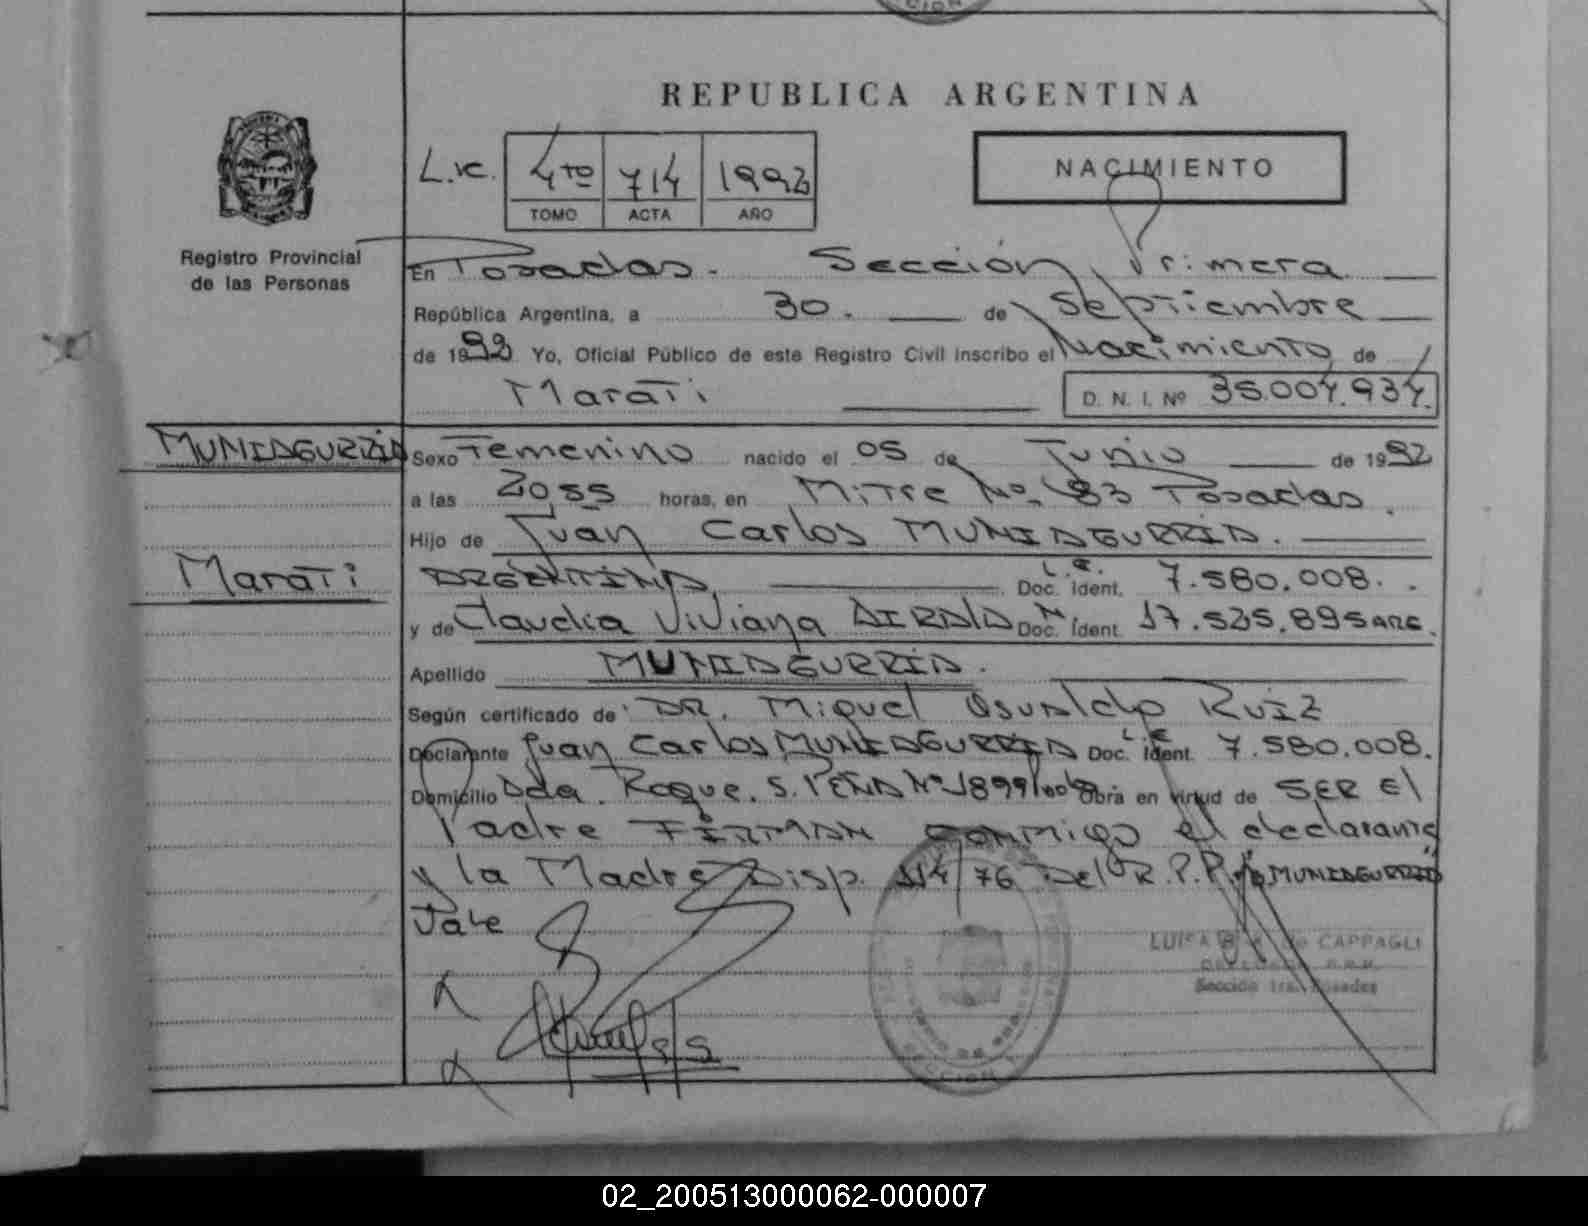 REPUBLICA ARGENTINA
L.IC. 4to 714 1992
TOMO ACTA AÑO
NACIMIENTO
Registro Provincial
de las Personas
En Posadas. Sección Primera
República Argentina, a 30. de Septiembre
de 1992 Yo, Oficial Público de este Registro Civil inscribo el Nacimiento de
Marati D. N. I. Nº 35.004.934.
MUNIAGURRIA
Sexo Femenino nacido el 05 de Junio de 1992
a las 20,55 horas, en Mitre No. 83 Posadas.
Hijo de Juan Carlos MUNIAGURRIA.
Marati
ARGENTINA. L.E. Doc. Ident. 7.580.008.
y de Claudia Viviana AIRALA Doc. Ident. 17.525.895 ARG.
Apellido MUNIAGURRIA.
Según certificado de DR. Miguel Osvaldo Ruiz
Declarante Juan Carlos MUNIAGURRIA L.E. Doc. Ident. 7.580.008.
Domicilio Avda. Roque. S. PEÑA Nº 1899 Obra en virtud de SER El
Padre FIRMAN CONMIGO el declarante
y la Madre Disp. 114/76 Del R.P.P. MUNIAGURRIA
Vale
LUISA de CAPPAGLI
Sección 1ra. Posadas
02_200513000062-000007